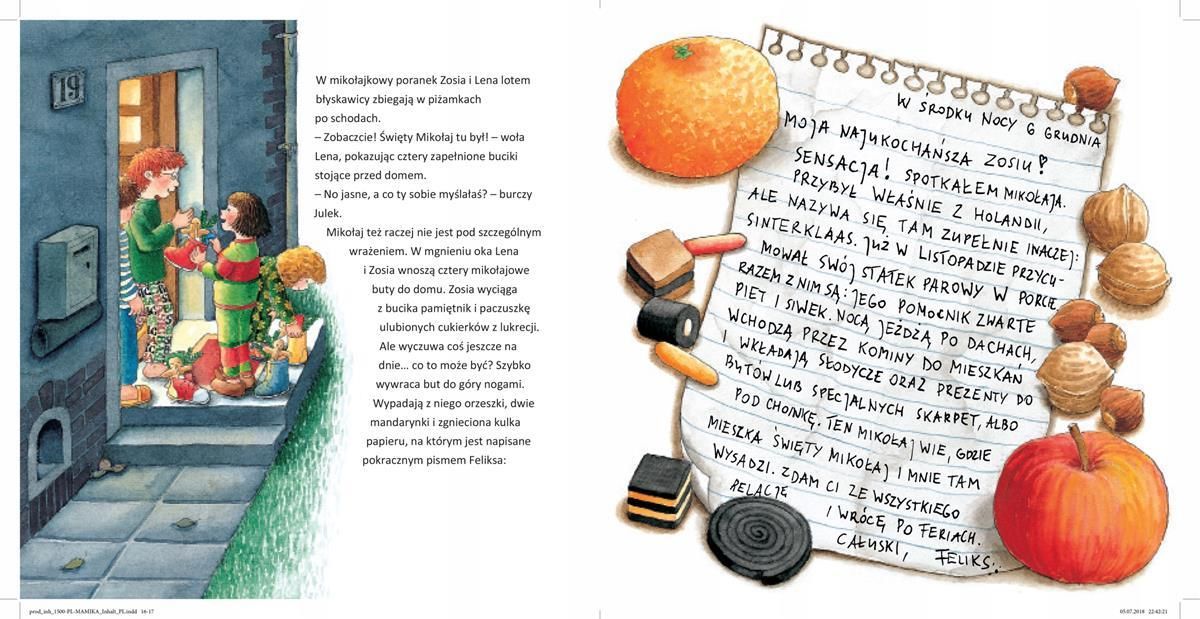 19
W mikołajkowy poranek Zosia i Lena lotem
błyskawicy zbiegają w piżamkach
po schodach.
– Zobaczcie! Święty Mikołaj tu był! – woła
Lena, pokazując cztery zapełnione buciki
stojące przed domem.
– No jasne, a co ty sobie myślałaś? – burczy
Julek.
Mikołaj też raczej nie jest pod szczególnym
wrażeniem. W mgnieniu oka Lena
i Zosia wnoszą cztery mikołajowe
buty do domu. Zosia wyciąga
z bucika pamiętnik i paczuszkę
ulubionych cukierków z lukrecji.
Ale wyczuwa coś jeszcze na
dnie... co to może być? Szybko
wywraca but do góry nogami.
Wypadają z niego orzeszki, dwie
mandarynki i zgnieciona kulka
papieru, na którym jest napisane
pokracznym pismem Feliksa:
W ŚRODKU NOCY 6 GRUDNIA
MOJA NAJUKOCHAŃSZA ZOSIU!
SENSACJA! SPOTKAŁEM MIKOŁAJA.
PRZYBYŁ WŁAŚNIE Z HOLANDII,
ALE NAZYWA SIĘ TAM ZUPEŁNIE INACZEJ:
SINTERKLAAS. JUŻ W LISTOPADZIE PRZYCU-
MOWAŁ SWÓJ STATEK PAROWY W PORCIE.
RAZEM Z NIM SĄ: JEGO POMOCNIK ZWARTE
PIET I SIWEK. NOCĄ JEŻDŻĄ PO DACHACH,
WCHODZĄ PRZEZ KOMINY DO MIESZKAŃ
I WKŁADAJĄ SŁODYCZE ORAZ PREZENTY DO
BUTÓW LUB SPECJALNYCH SKARPET, ALBO
POD CHOINKĘ. TEN MIKOŁAJ WIE, GDZIE
MIESZKA ŚWIĘTY MIKOŁAJ I MNIE TAM
WYSADZI. ZDAM CI ZE WSZYSTKIEGO
RELACJĘ
I WRÓCĘ PO FERIACH.
CAŁUSKI, FELIKS
prod_inh_1500-PL-MAMIKA_Inhalt_PL.indd 16-17
05.07.2018 22:42:21